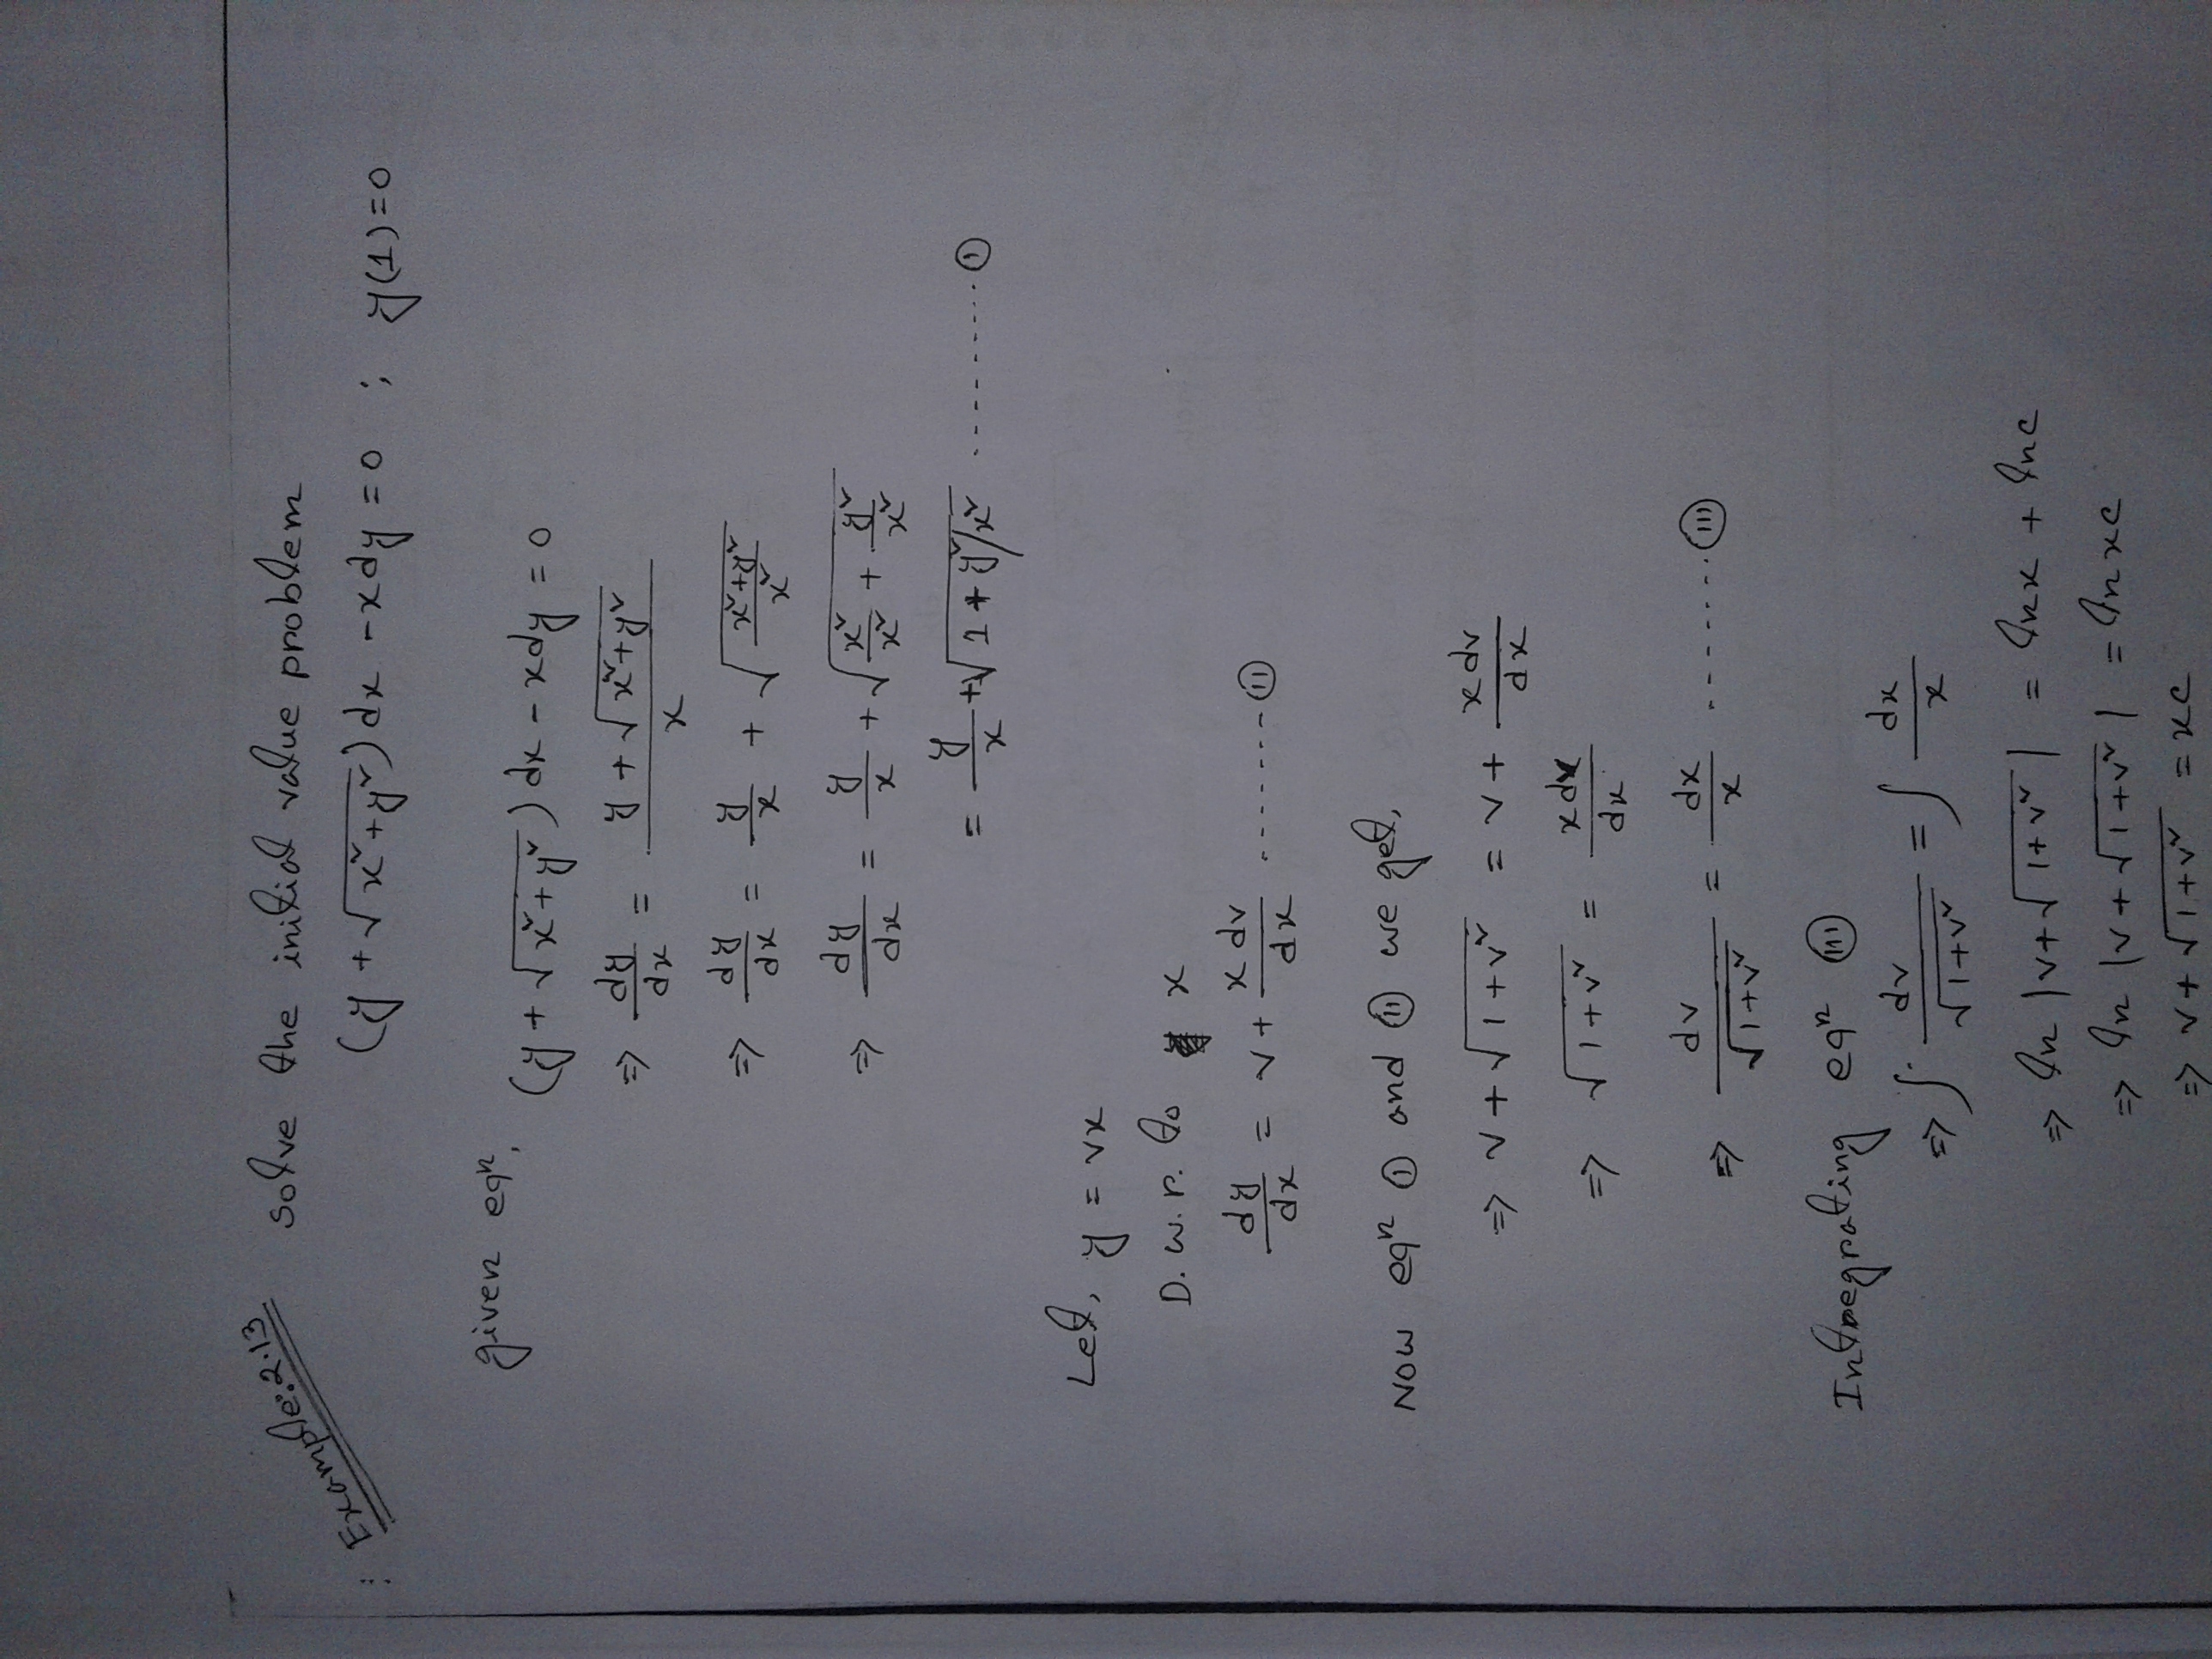 Example: 2.13 solve the initial value problem
(y + √(x² + y²)) dx - x dy = 0 ; y(1) = 0
given eqⁿ,
(y + √(x² + y²)) dx - x dy = 0
⇒ dy/dx = (y + √(x² + y²))/x
⇒ dy/dx = y/x + √((x² + y²)/x²)
⇒ dy/dx = y/x + √(x²/x² + y²/x²)
= y/x + √(1 + y²/x²) ......... (i)
Let, y = vx
D. w. r. to x
dy/dx = v + x dv/dx ........ (ii)
Now eqⁿ (i) and (ii) we get,
⇒ v + √(1 + v²) = v + x dv/dx
⇒ √(1 + v²) = x dv/dx
⇒ dv/√(1 + v²) = dx/x ........ (iii)
Intregrating eqⁿ (iii)
⇒ ∫ dv/√(1 + v²) = ∫ dx/x
⇒ ln |v + √(1 + v²)| = ln x + ln c
⇒ ln |v + √(1 + v²)| = ln xc
⇒ v + √(1 + v²) = xc